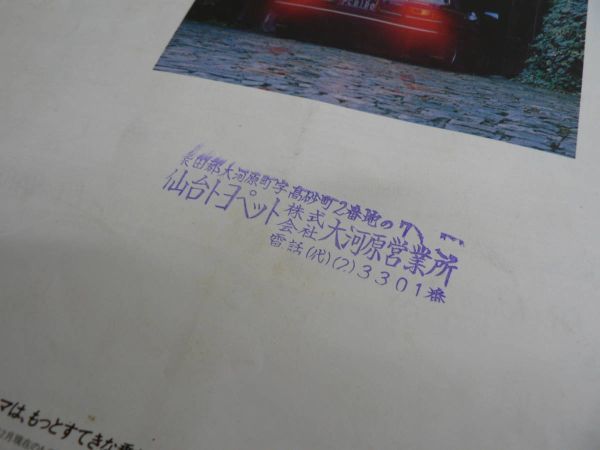 柴田郡大河原町字高砂町2番地の7
仙台トヨペット株式会社大河原営業所
電話(代)(2)3301番
マは、もっとすてきな